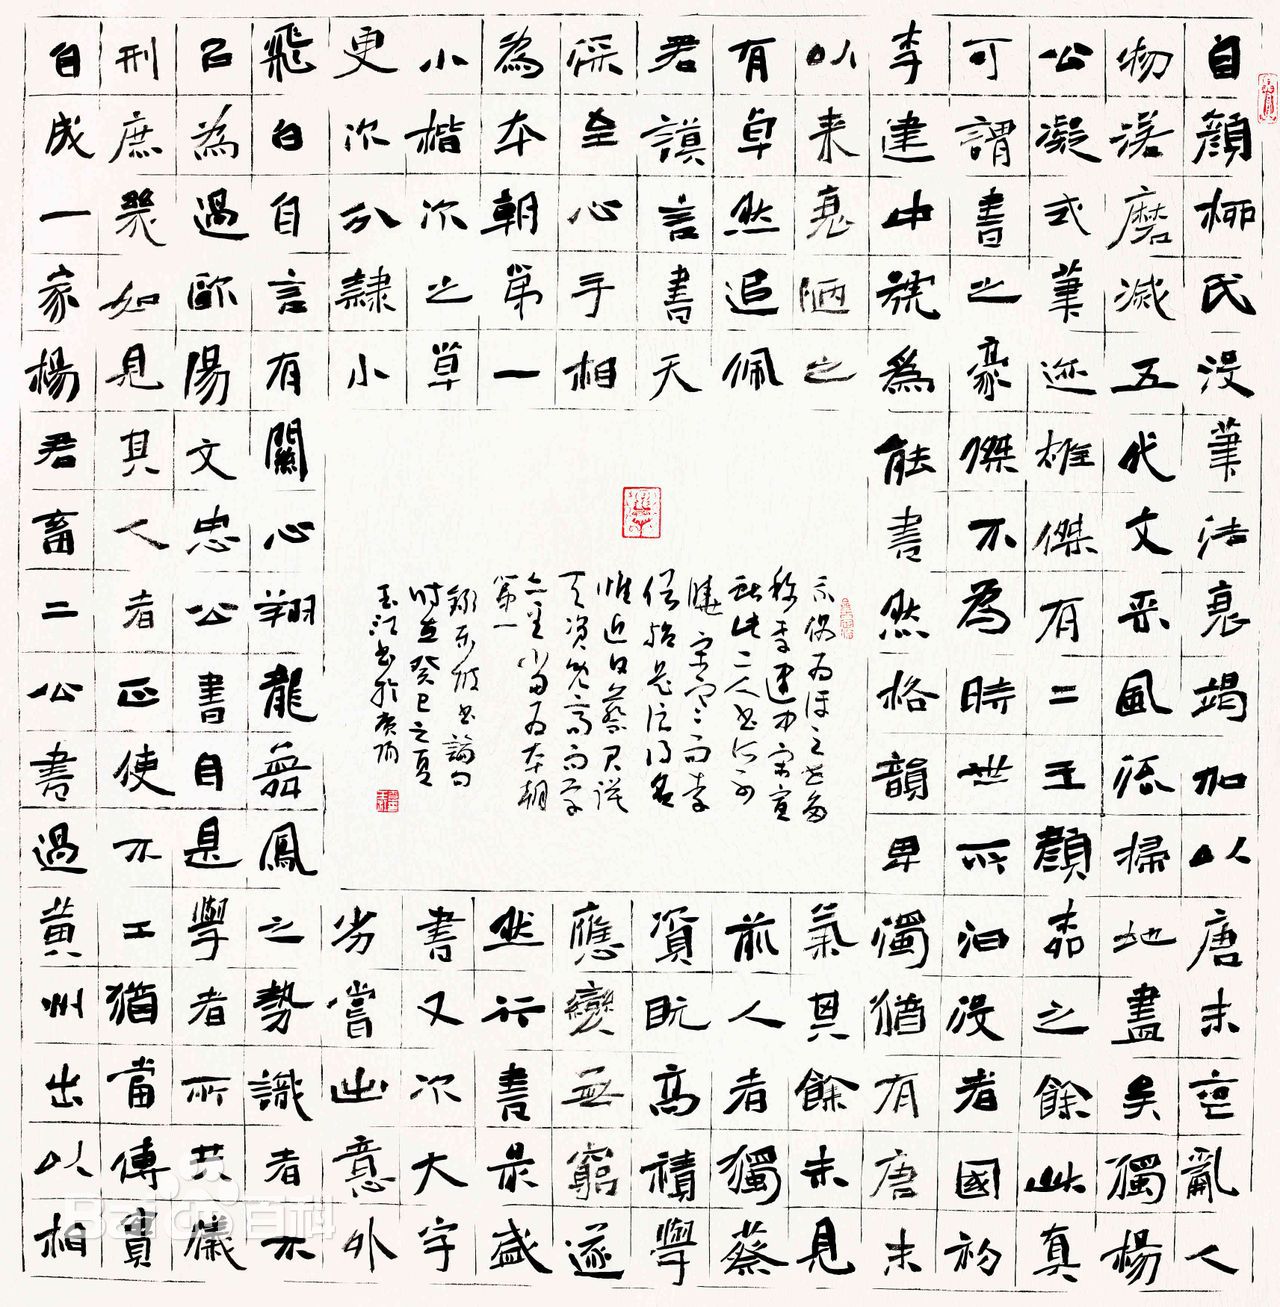 自顏柳氏沒筆法衰竭加以唐末喪亂人
物落磨滅五代文采風流掃地盡矣獨楊
公凝式筆迹雄傑有二王顏柳之餘此真
可謂書之豪傑不為時世所汩沒者國初
李建中號為能書然格韻卑濁猶有唐末
以來衰陋之氣其餘未見
有卓然追佩前人者獨蔡
君謨言書天資既高積學
深至心手相應變無窮遂
為本朝第一然行書最盛
小楷次之草書又次大字
更次分隸小劣嘗出意外
飛白自言有關心翔龍舞鳳之勢識者不
㠯為過歐陽文忠公書自是學者所共儀
刑庶幾如見其人者正使不工猶當傳寶
自成一家楊君畜二公書過黃州出以相
示偶為評之世多
稱李建中宋宣
獻此二人書
曉宋寒而李
俗殆是浪得名
惟近日蔡君謨
天資既高而學
亦至當為本朝
第一
錄東坡書論句
時在癸巳之夏
玉江書於
Baidu百科